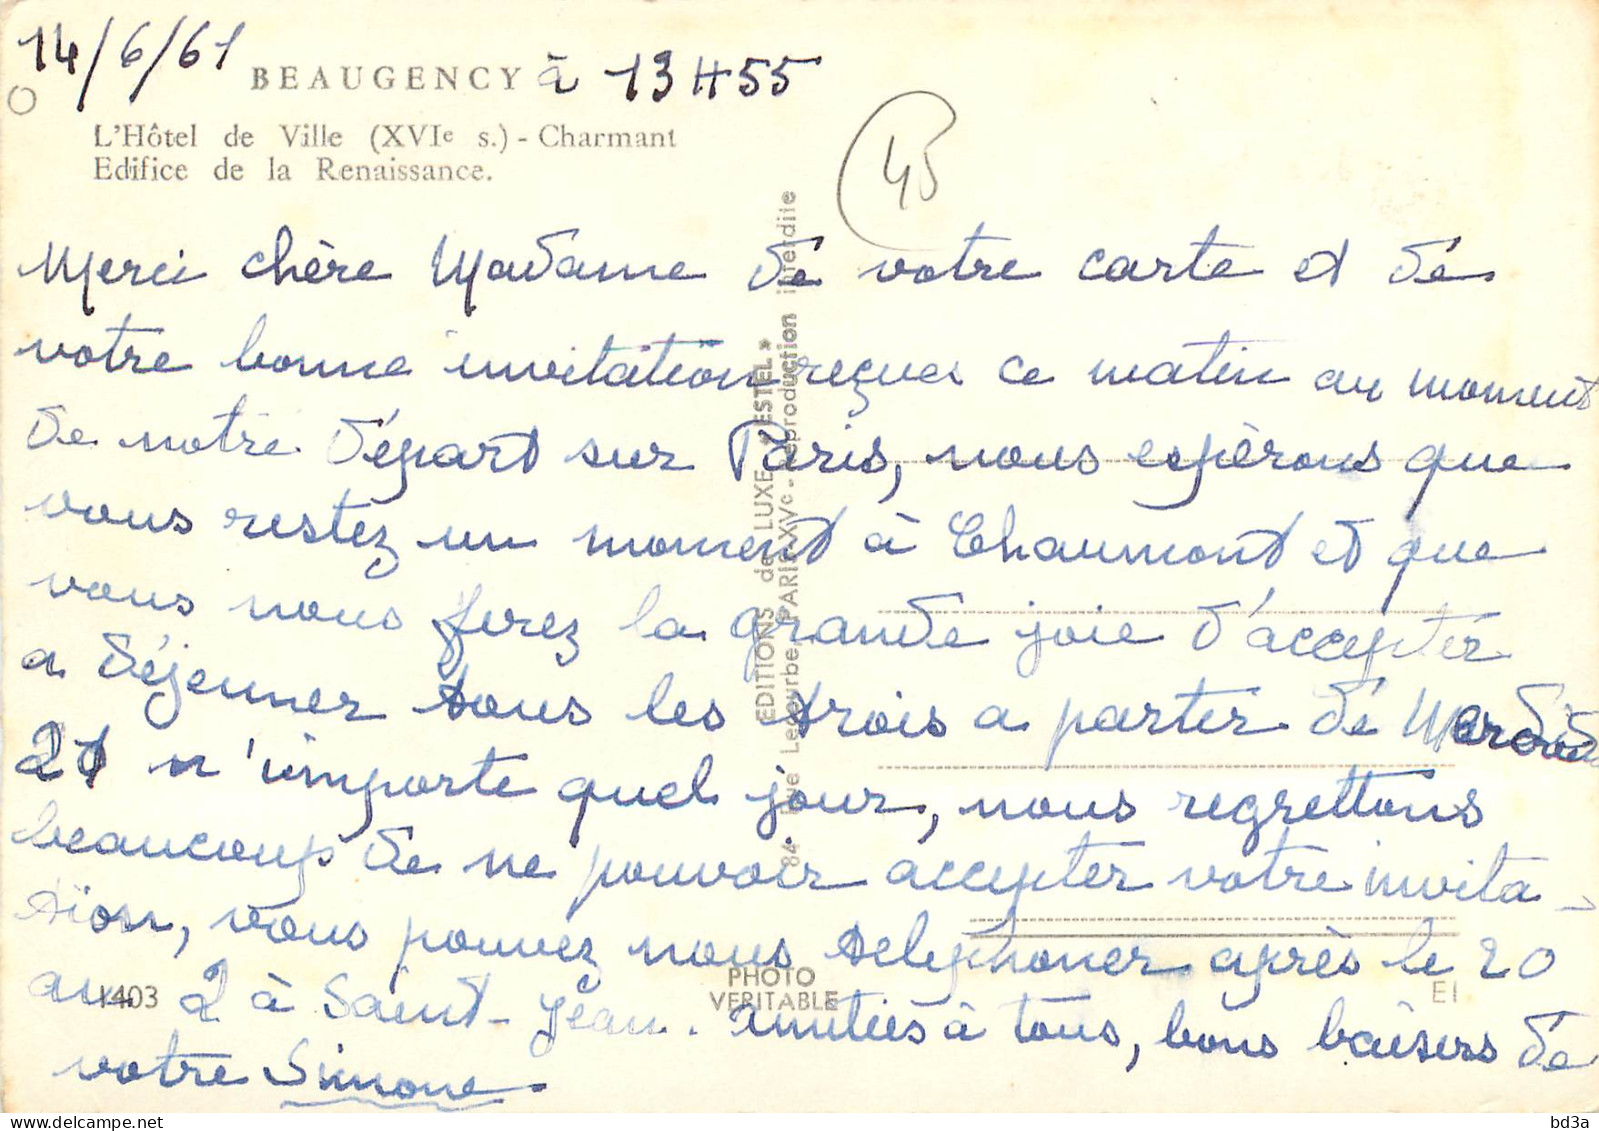 14/6/61 BEAUGENCY à 13H55
L'Hôtel de Ville (XVIe s.) - Charmant
Edifice de la Renaissance.
45
Merci chère Madame de votre carte et de
votre bonne invitation reçues ce matin au moment
de notre départ sur Paris, nous espèrons que
vous restez un moment à Chaumont et que
vous nous ferez la grande joie d'accepter
a déjeuner tous les trois a partir de
21 n'importe quel jour, nous regrettons
beaucoup de ne pouvoir accepter votre invita-
tion, vous pouvez nous telephoner après le 20
au 2 à Saint-Jean. amitiés à tous, bons baisers de
votre Simone.
EDITIONS de LUXE « ESTEL »
84, Rue Lecourbe, PARIS-XVe - Reproduction interdite
1403
PHOTO
VERITABLE
EI
www.delcampe.net
bd3a